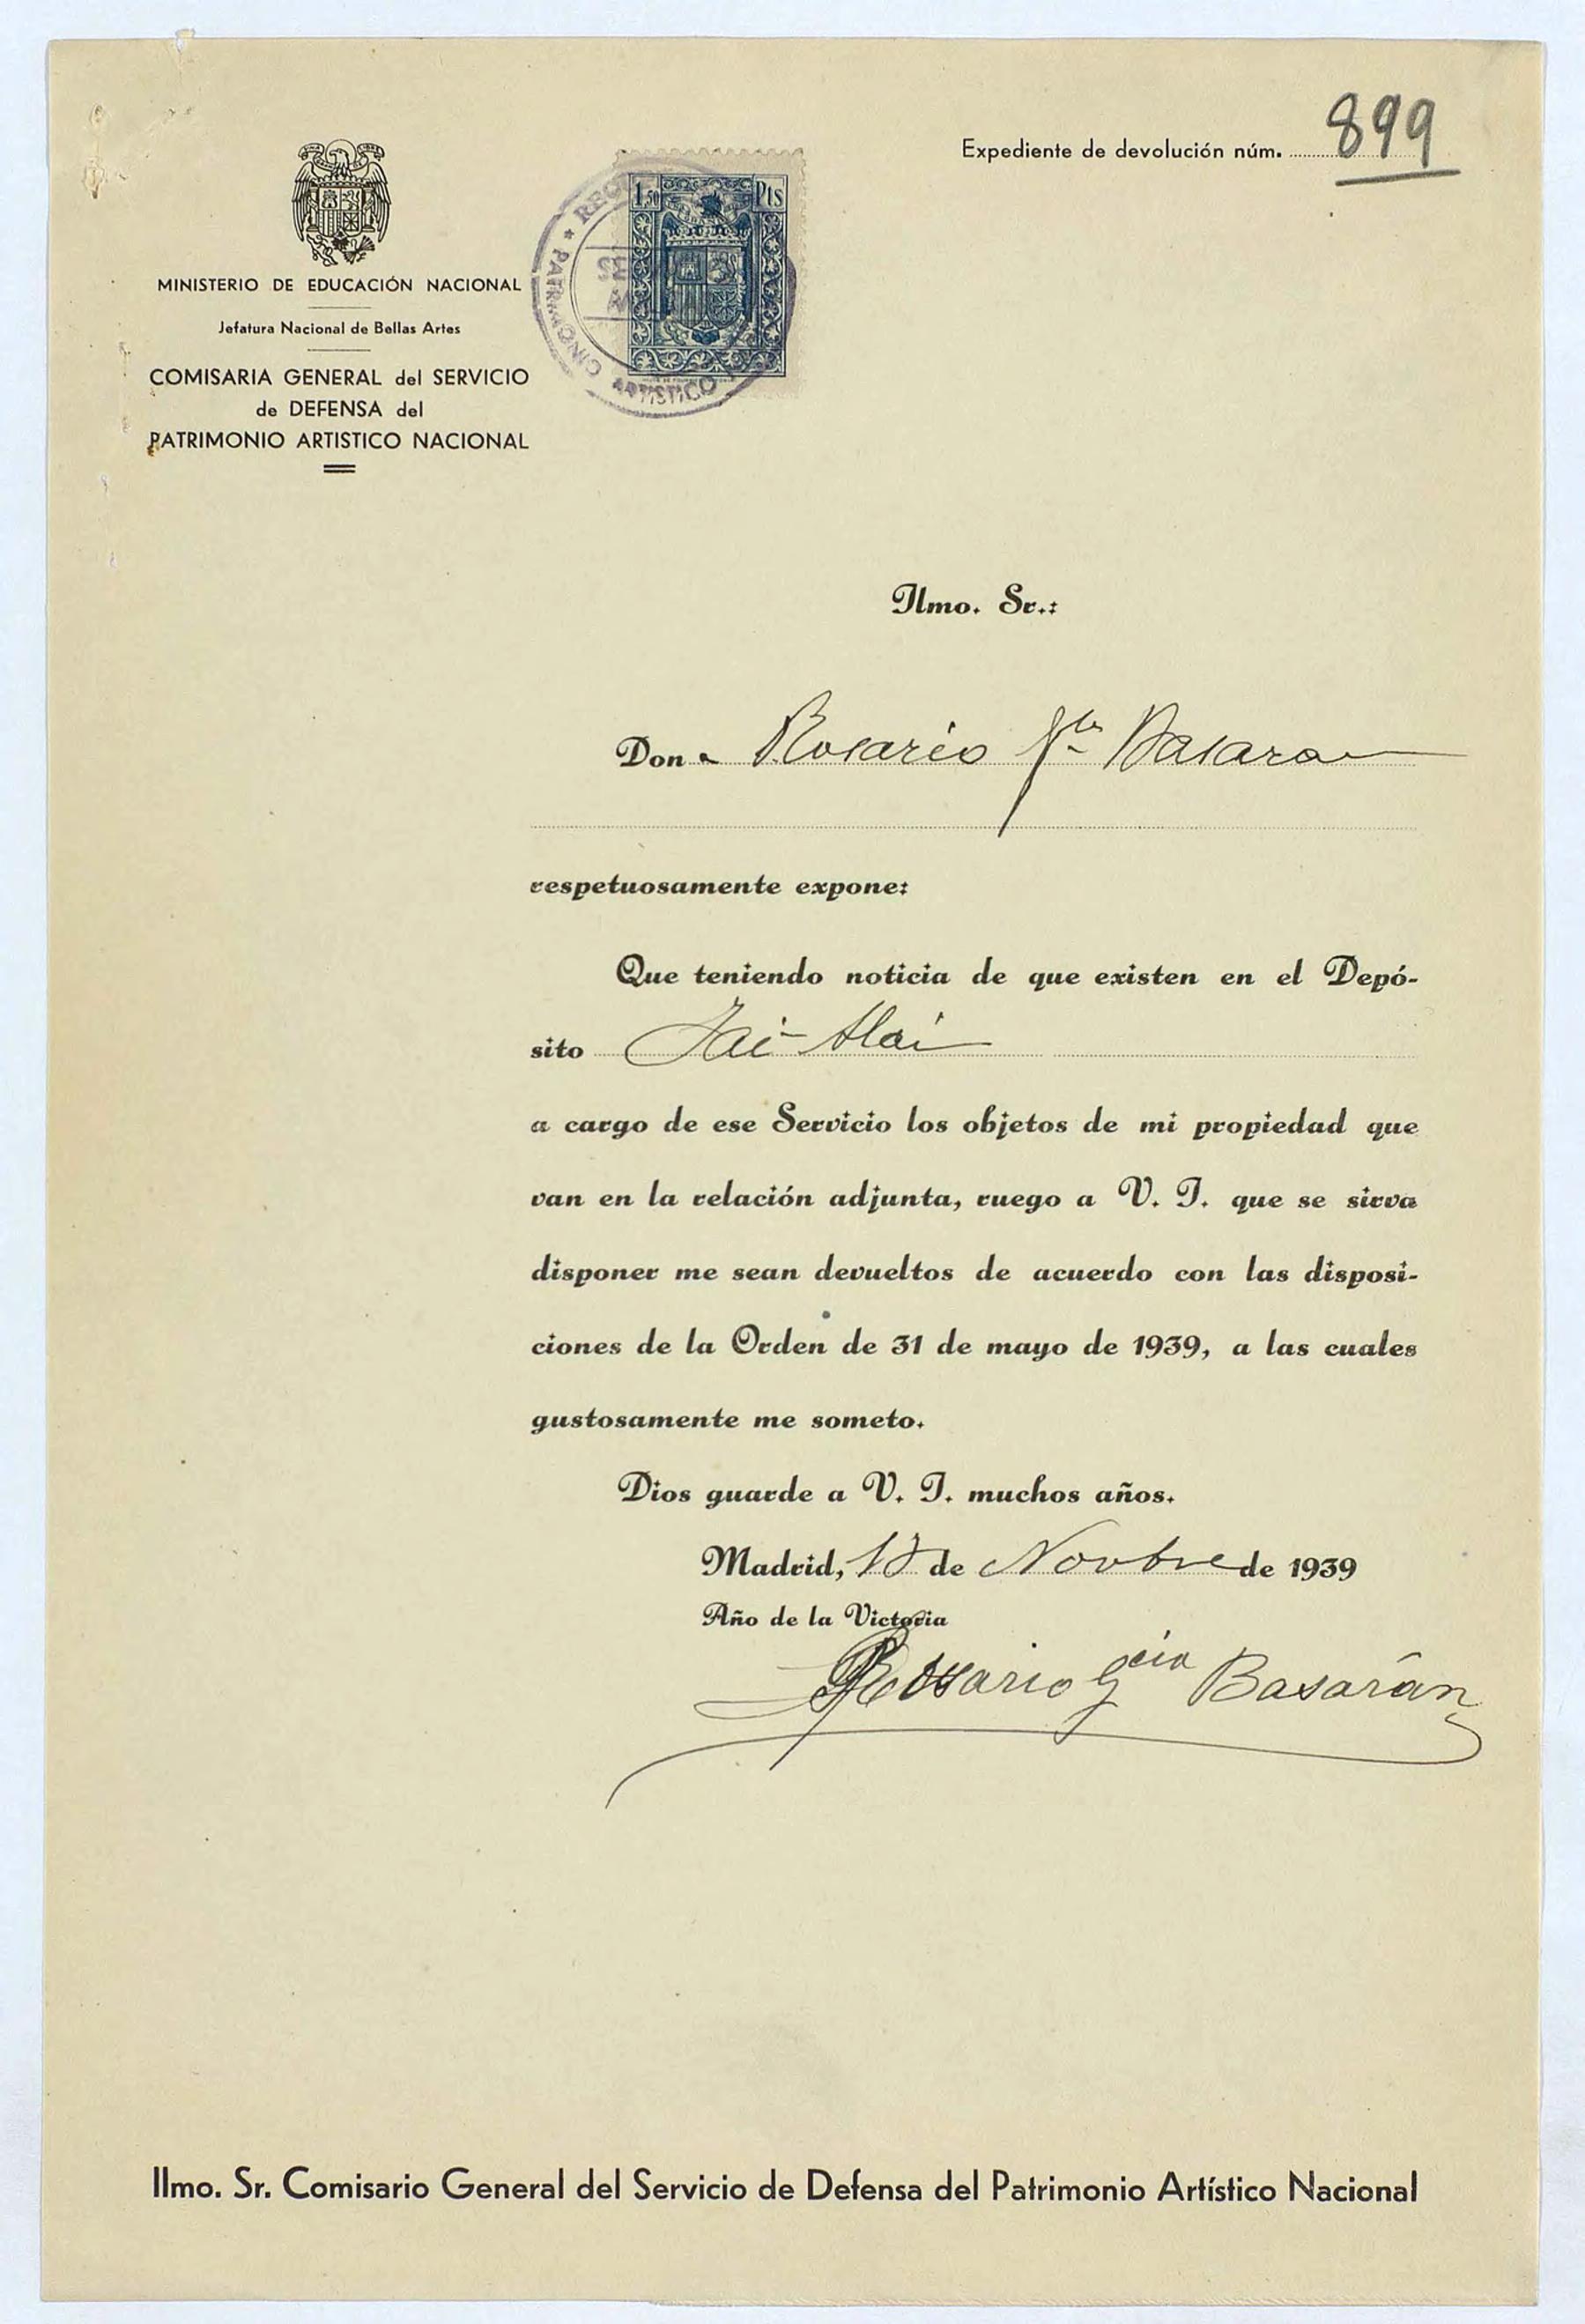 Expediente de devolución núm. 899
1,50 Pts
PATRIMONIO ARTÍSTICO
MINISTERIO DE EDUCACIÓN NACIONAL
Jefatura Nacional de Bellas Artes
COMISARIA GENERAL del SERVICIO
de DEFENSA del
PATRIMONIO ARTISTICO NACIONAL
Ilmo. Sr.:
Don a Rosario Basaran
respetuosamente expone:
Que teniendo noticia de que existen en el Depó-
sito Jai-Alai
a cargo de ese Servicio los objetos de mi propiedad que
van en la relación adjunta, ruego a V. I. que se sirva
disponer me sean devueltos de acuerdo con las disposi-
ciones de la Orden de 31 de mayo de 1939, a las cuales
gustosamente me someto.
Dios guarde a V. I. muchos años.
Madrid, de Novbre de 1939
Año de la Victoria
Rosario Gcia Basarán
Ilmo. Sr. Comisario General del Servicio de Defensa del Patrimonio Artístico Nacional